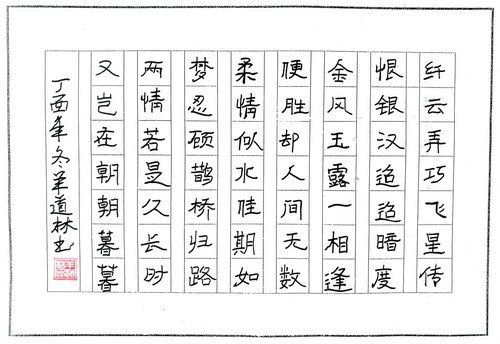 纤云弄巧飞星传
恨银汉迢迢暗度
金风玉露一相逢
便胜却人间无数
柔情似水佳期如
梦忍顾鹊桥归路
两情若是久长时
又岂在朝朝暮暮
丁酉年冬羊道林书